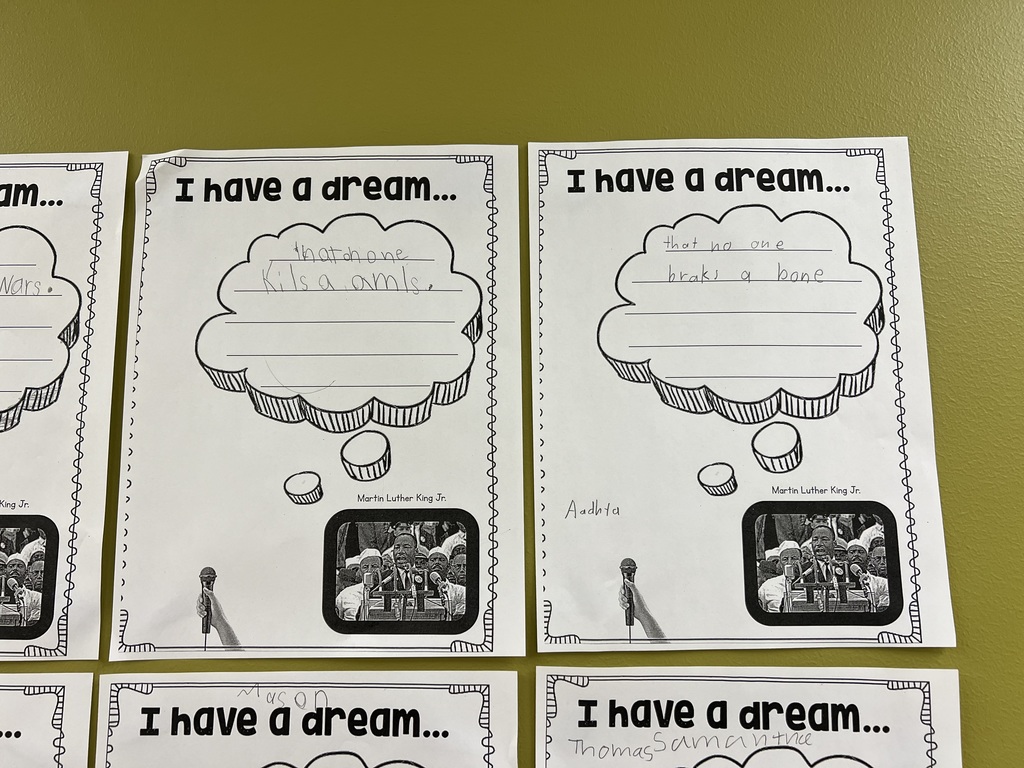 am...
Wars.
King Jr.
I have a dream...
that no one
Kils a amls.
Martin Luther King Jr.
I have a dream...
that no one
braks a bone
Martin Luther King Jr.
Aadhya
...
Mason
I have a dream...
I have a dream...
Thomas Samantha